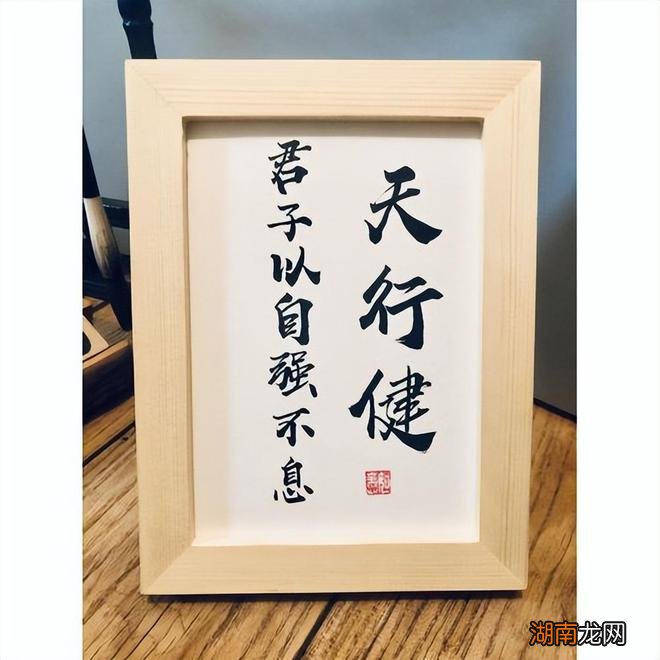 天行健
君子以自强不息
湖南龙网